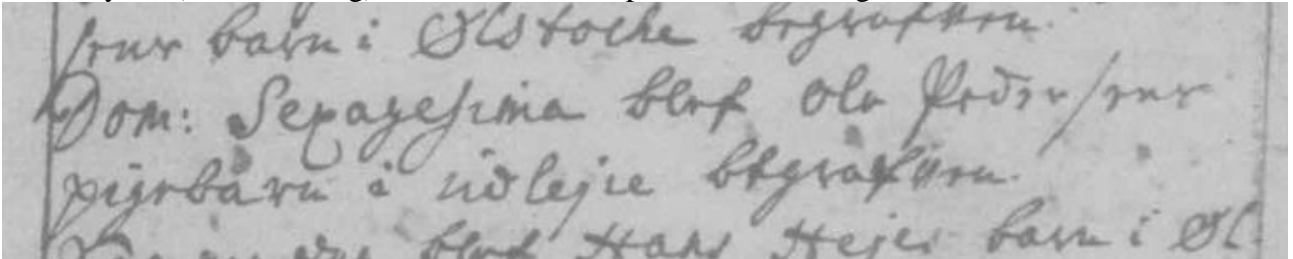 sens barn i Ølstocke begrafven.
Dom: Sexagesima blef Ole Pedersens
pigebarn i udlejre begrafven.
blef Hans barn i Øl-